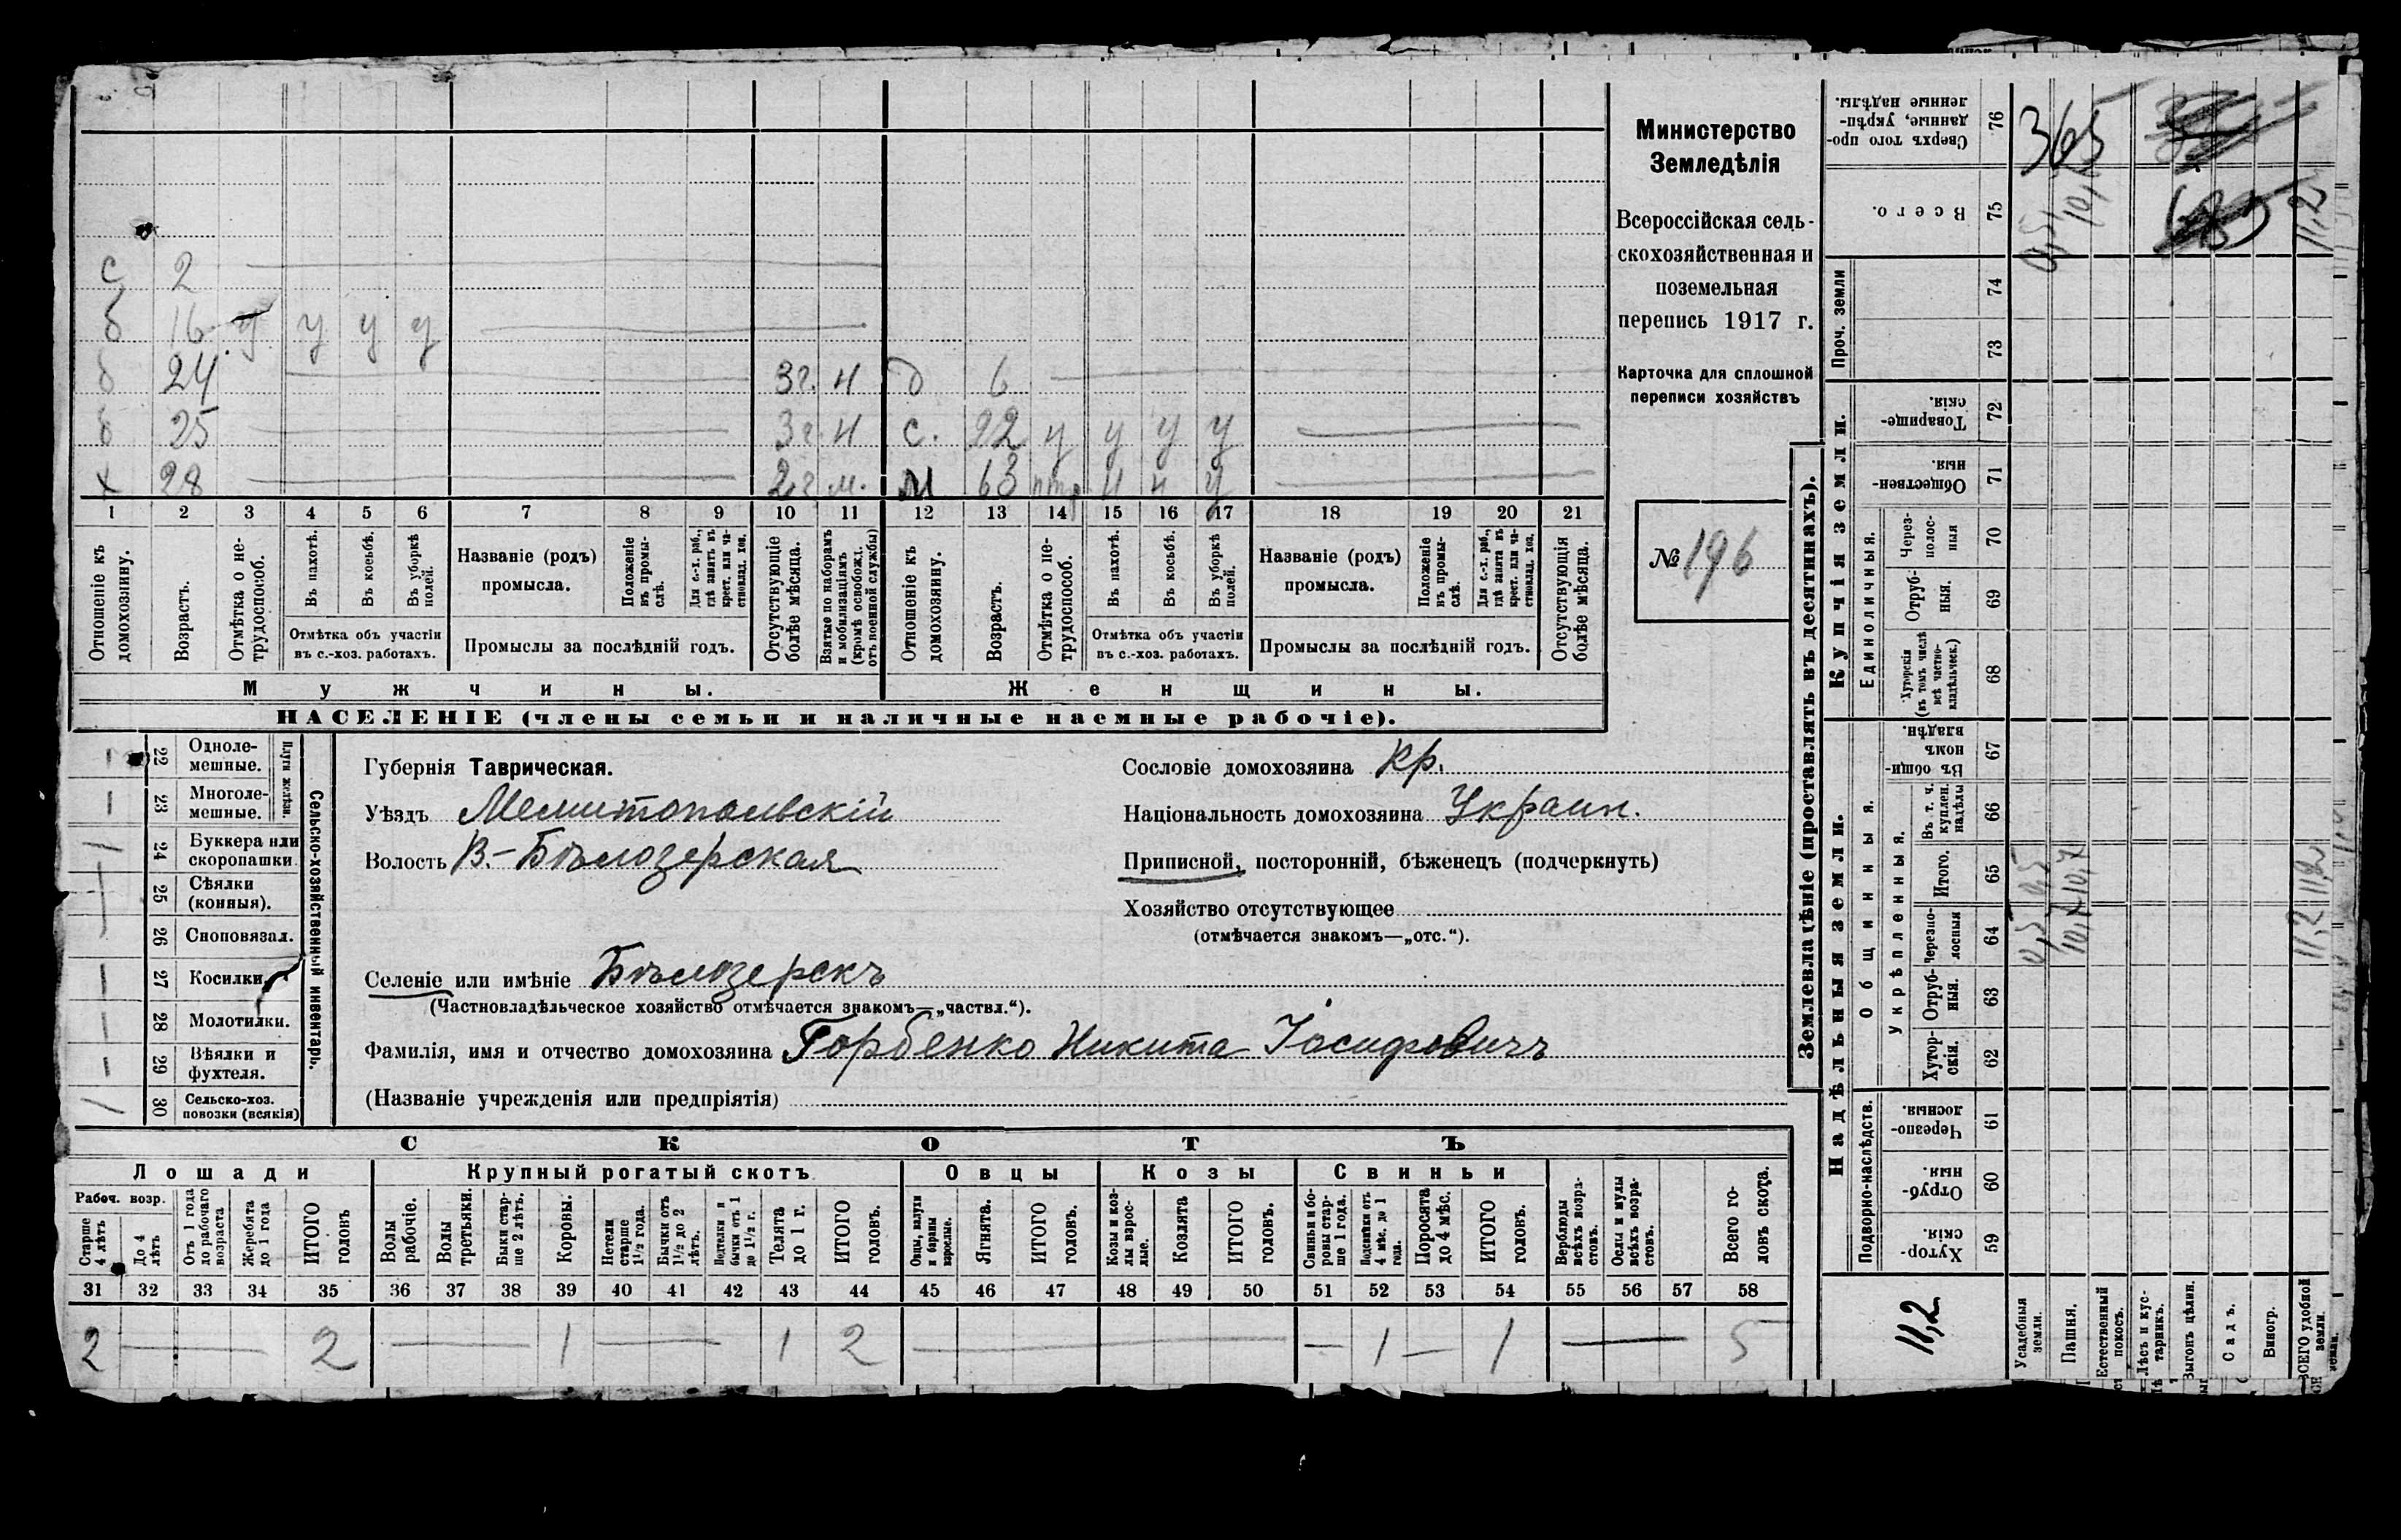 с 2
б 16 у у у
б 24 3г. н д 6
б 25 3г. н с. 22 у у у
х 28 2г м. м 63
1 2 3 4 5 6 7 8 9 10 11 12 13 14 15 16 17 18 19 20 21
Отношеніе къ домохозяину.
Возрастъ.
Отмѣтка о нетрудоспособ.
Въ пахотѣ.
Въ косьбѣ.
Въ уборкѣ полей.
Отмѣтка объ участіи
въ с.-хоз. работахъ.
Названіе (родъ)
промысла.
Положеніе въ промыслѣ.
Для с.-х. раб., гдѣ занятъ въ крест. или частновлад. хоз.
Промыслы за послѣдній годъ.
Отсутствующіе болѣе мѣсяца.
Взятые по наборамъ и мобилизаціямъ (кромѣ освобожд. отъ военной службы)
Отношеніе къ домохозяину.
Возрастъ.
Отмѣтка о нетрудоспособ.
Въ пахотѣ.
Въ косьбѣ.
Въ уборкѣ полей.
Отмѣтка объ участіи
въ с.-хоз. работахъ.
Названіе (родъ)
промысла.
Положеніе въ промыслѣ.
Для с.-х. раб., гдѣ занята въ крест. или частновлад. хоз.
Промыслы за послѣдній годъ.
Отсутствующія болѣе мѣсяца.
Мужчины. Женщины.
НАСЕЛЕНІЕ (члены семьи и наличные наемные рабочіе).
Министерство
Земледѣлія
Всероссійская сель-
скохозяйственная и
поземельная
перепись 1917 г.
Карточка для сплошной
переписи хозяйствъ
№ 196
Сельско-хозяйственный инвентарь.
Плуги желѣзн.
22 Одноле-
мешные.
23 Многоле-
мешные.
24 Буккера или
скоропашки
25 Сѣялки
(конныя).
26 Сноповязал.
27 Косилки
28 Молотилки.
29 Вѣялки и
фухтеля.
30 Сельско-хоз.
повозки (всякія)
Губернія Таврическая.
Уѣздъ Мелитопольскій
Волость В.-Бѣлозерская
Сословіе домохозяина кр.
Національность домохозяина Украин.
Приписной, посторонній, бѣженецъ (подчеркнуть)
Хозяйство отсутствующее
(отмѣчается знакомъ—„отс.“).
Селеніе или имѣніе Бѣлозерскъ
(Частновладѣльческое хозяйство отмѣчается знакомъ—„частвл.“).
Фамилія, имя и отчество домохозяина Горбенко Никита Іосифовичъ
(Названіе учрежденія или предпріятія)
СКОТЪ
Лошади Крупный рогатый скотъ Овцы Козы Свиньи
Рабоч. возр.
Старше 4 лѣтъ
До 4 лѣтъ
Отъ 1 года до рабочаго возраста
Жеребята до 1 года
ИТОГО головъ
Волы рабочіе.
Волы третьяки.
Быки старше 2 лѣтъ.
Коровы.
Нетели старше 1½ года.
Бычки отъ 1½ до 2 лѣтъ.
Подтелки и бычки отъ 1 до 1½ г.
Телята до 1 г.
ИТОГО головъ.
Овцы, валухи и бараны взрослые.
Ягнята.
ИТОГО головъ.
Козы и козлы взрослые.
Козлята
ИТОГО головъ.
Свиньи и боровы старше 1 года.
Подсвинки отъ 4 мѣс. до 1 года.
Поросята до 4 мѣс.
ИТОГО головъ.
Верблюды всѣхъ возрастовъ.
Ослы и мулы всѣхъ возрастовъ.
Всего головъ скота.
31 32 33 34 35 36 37 38 39 40 41 42 43 44 45 46 47 48 49 50 51 52 53 54 55 56 57 58
2 2 1 1 2 1 1 5
Землевладѣніе (проставлять въ десятинахъ).
Надѣльныя земли. Купчія земли. Проч. земли
Подворно-наслѣдств.
Общинныя.
укрѣпленныя.
Единоличныя.
Хутор-
скія. 59
Отруб-
ныя. 60
Черезпо-
лосныя. 61
Хутор-
скія. 62
Отруб-
ныя. 63
Черезпо-
лосныя 64
Итого. 65
Въ т. ч.
куплен.
надѣлы 66
Въ общи-
номъ
владѣн. 67
Хуторскія
(въ томъ числѣ
всѣ частно-
владѣльческ.) 68
Отруб-
ныя. 69
Через-
полос-
ныя 70
Обществен-
ныя. 71
Товарище-
скія. 72
73
74
Всего. 75
Сверхъ того про-
данные, укрѣп-
ленные надѣлы. 76
11,2
Усадебныя
земли. 0,5 0,5 0,5
Пашня. 10,7 10,7
Естественный
покосъ.
Лѣсъ и кус-
тарникъ.
Выгонъ цѣлин.
Садъ.
Виногр.
ВСЕГО удобной
земли. 11,2 11,2 11,2
365